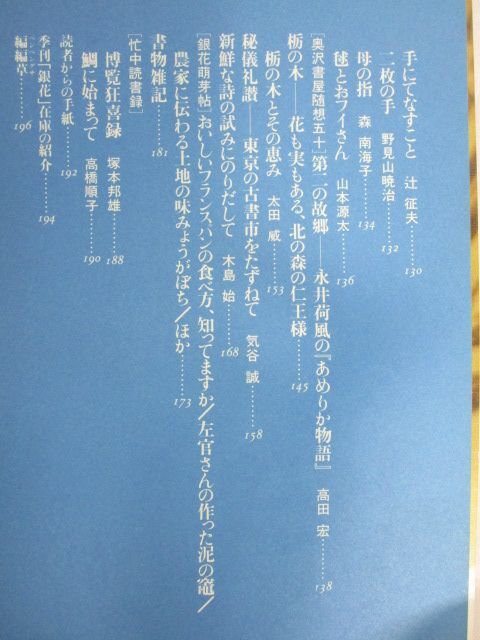 手にてなすこと 辻 征夫………130
二枚の手 野見山暁治………132
母の指 森 南海子………134
毬とおフイさん 山本源太………136
［奥沢書屋随想五十］第二の故郷――永井荷風の『あめりか物語』 高田 宏………138
栃の木――花も実もある、北の森の仁王様………145
栃の木とその恵み 太田 威………153
秘儀礼讃――東京の古書市をたずねて 気谷 誠………158
新鮮な詩の試みにのりだして 木島 始………168
［銀花萌芽帖］おいしいフランスパンの食べ方、知ってますか/左官さんの作った泥の竈/
農家に伝わる土地の味みょうがぼち/ほか………173
書物雑記………181
［忙中読書録］
博覧狂喜録 塚本邦雄………188
鯛に始まって 高橋順子………190
読者からの手紙………192
季刊「銀花」在庫の紹介………194
編編草………196
ペンペングサ